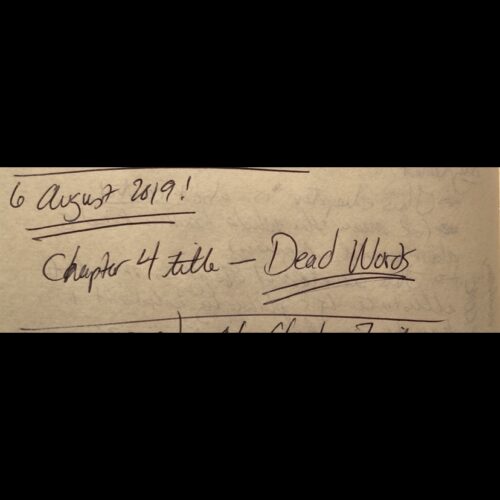 6 August 2019!
Chapter 4 title — Dead Words